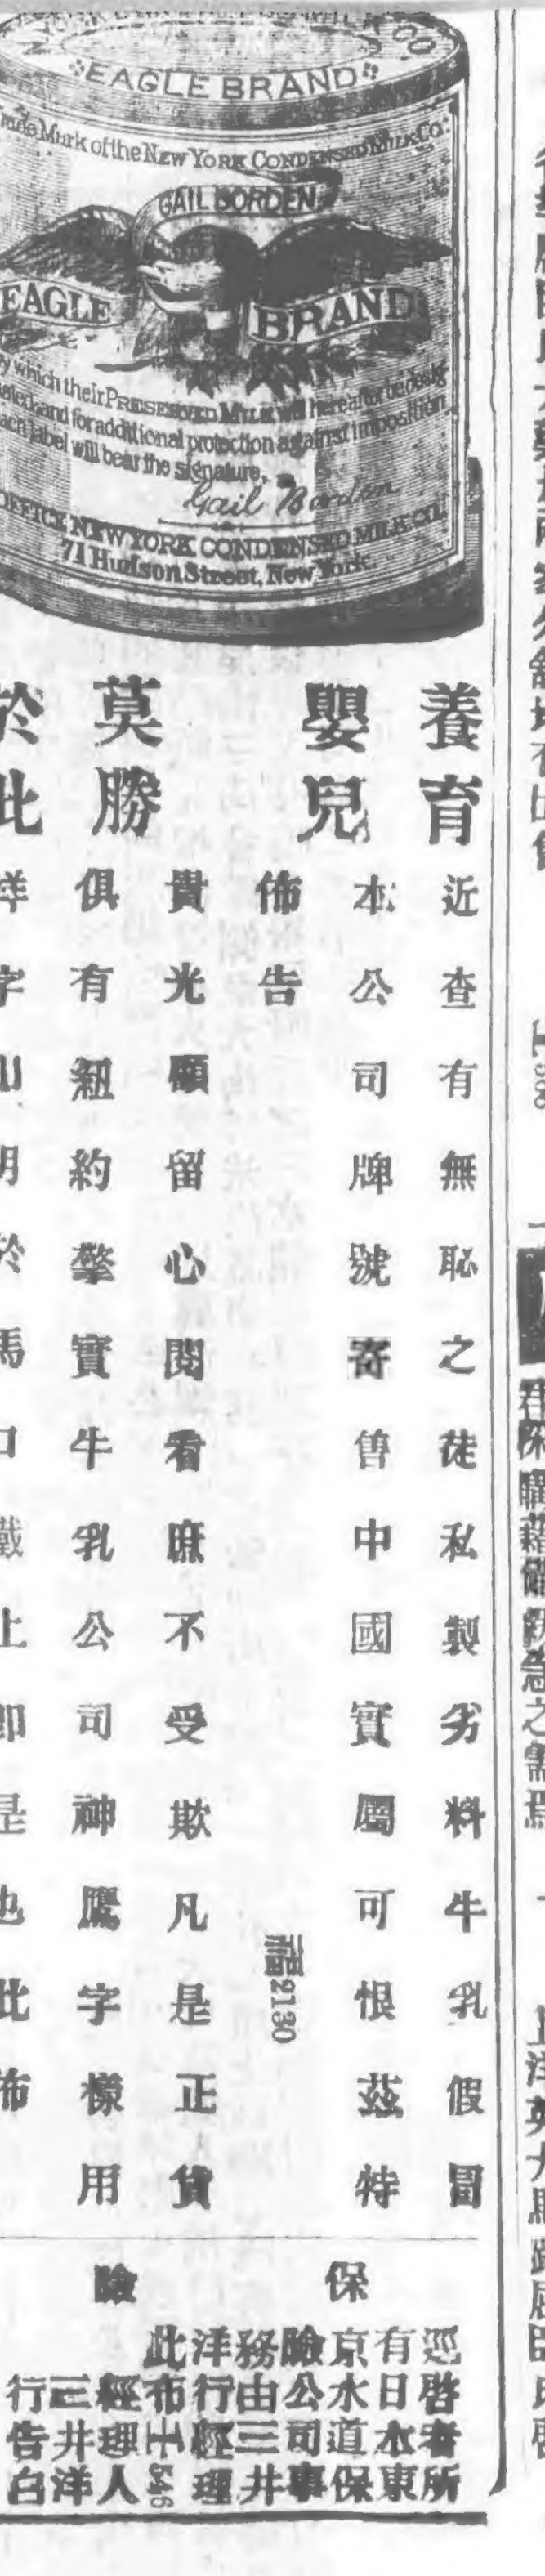 EAGLE BRAND
Trade Mark of the NEW YORK CONDENSED MILK CO.
GAIL BORDEN
EAGLE BRAND
By which their PRESERVED MILK will hereafter be desig-
nated and for additional protection against imposition
each label will bear the signature.
Gail Borden
OFFICE NEW YORK CONDENSED MILK CO.
71 Hudson Street, New York.
養育
嬰兒
莫勝
於此
近查有無恥之徒私製劣料牛乳假冒
本公司牌號寄售中國實屬可恨茲特
佈告
福2130
貴光顧留心閱看庶不受欺凡是正貨
俱有紐約擎實牛乳公司神鷹字樣用
洋字印明於馬口鐵上即是也此佈
保險
巡啓者所
有日本東
京水道保
險公司事
務由三井
洋行經理
此布 士546
經理人
三井洋
行告白